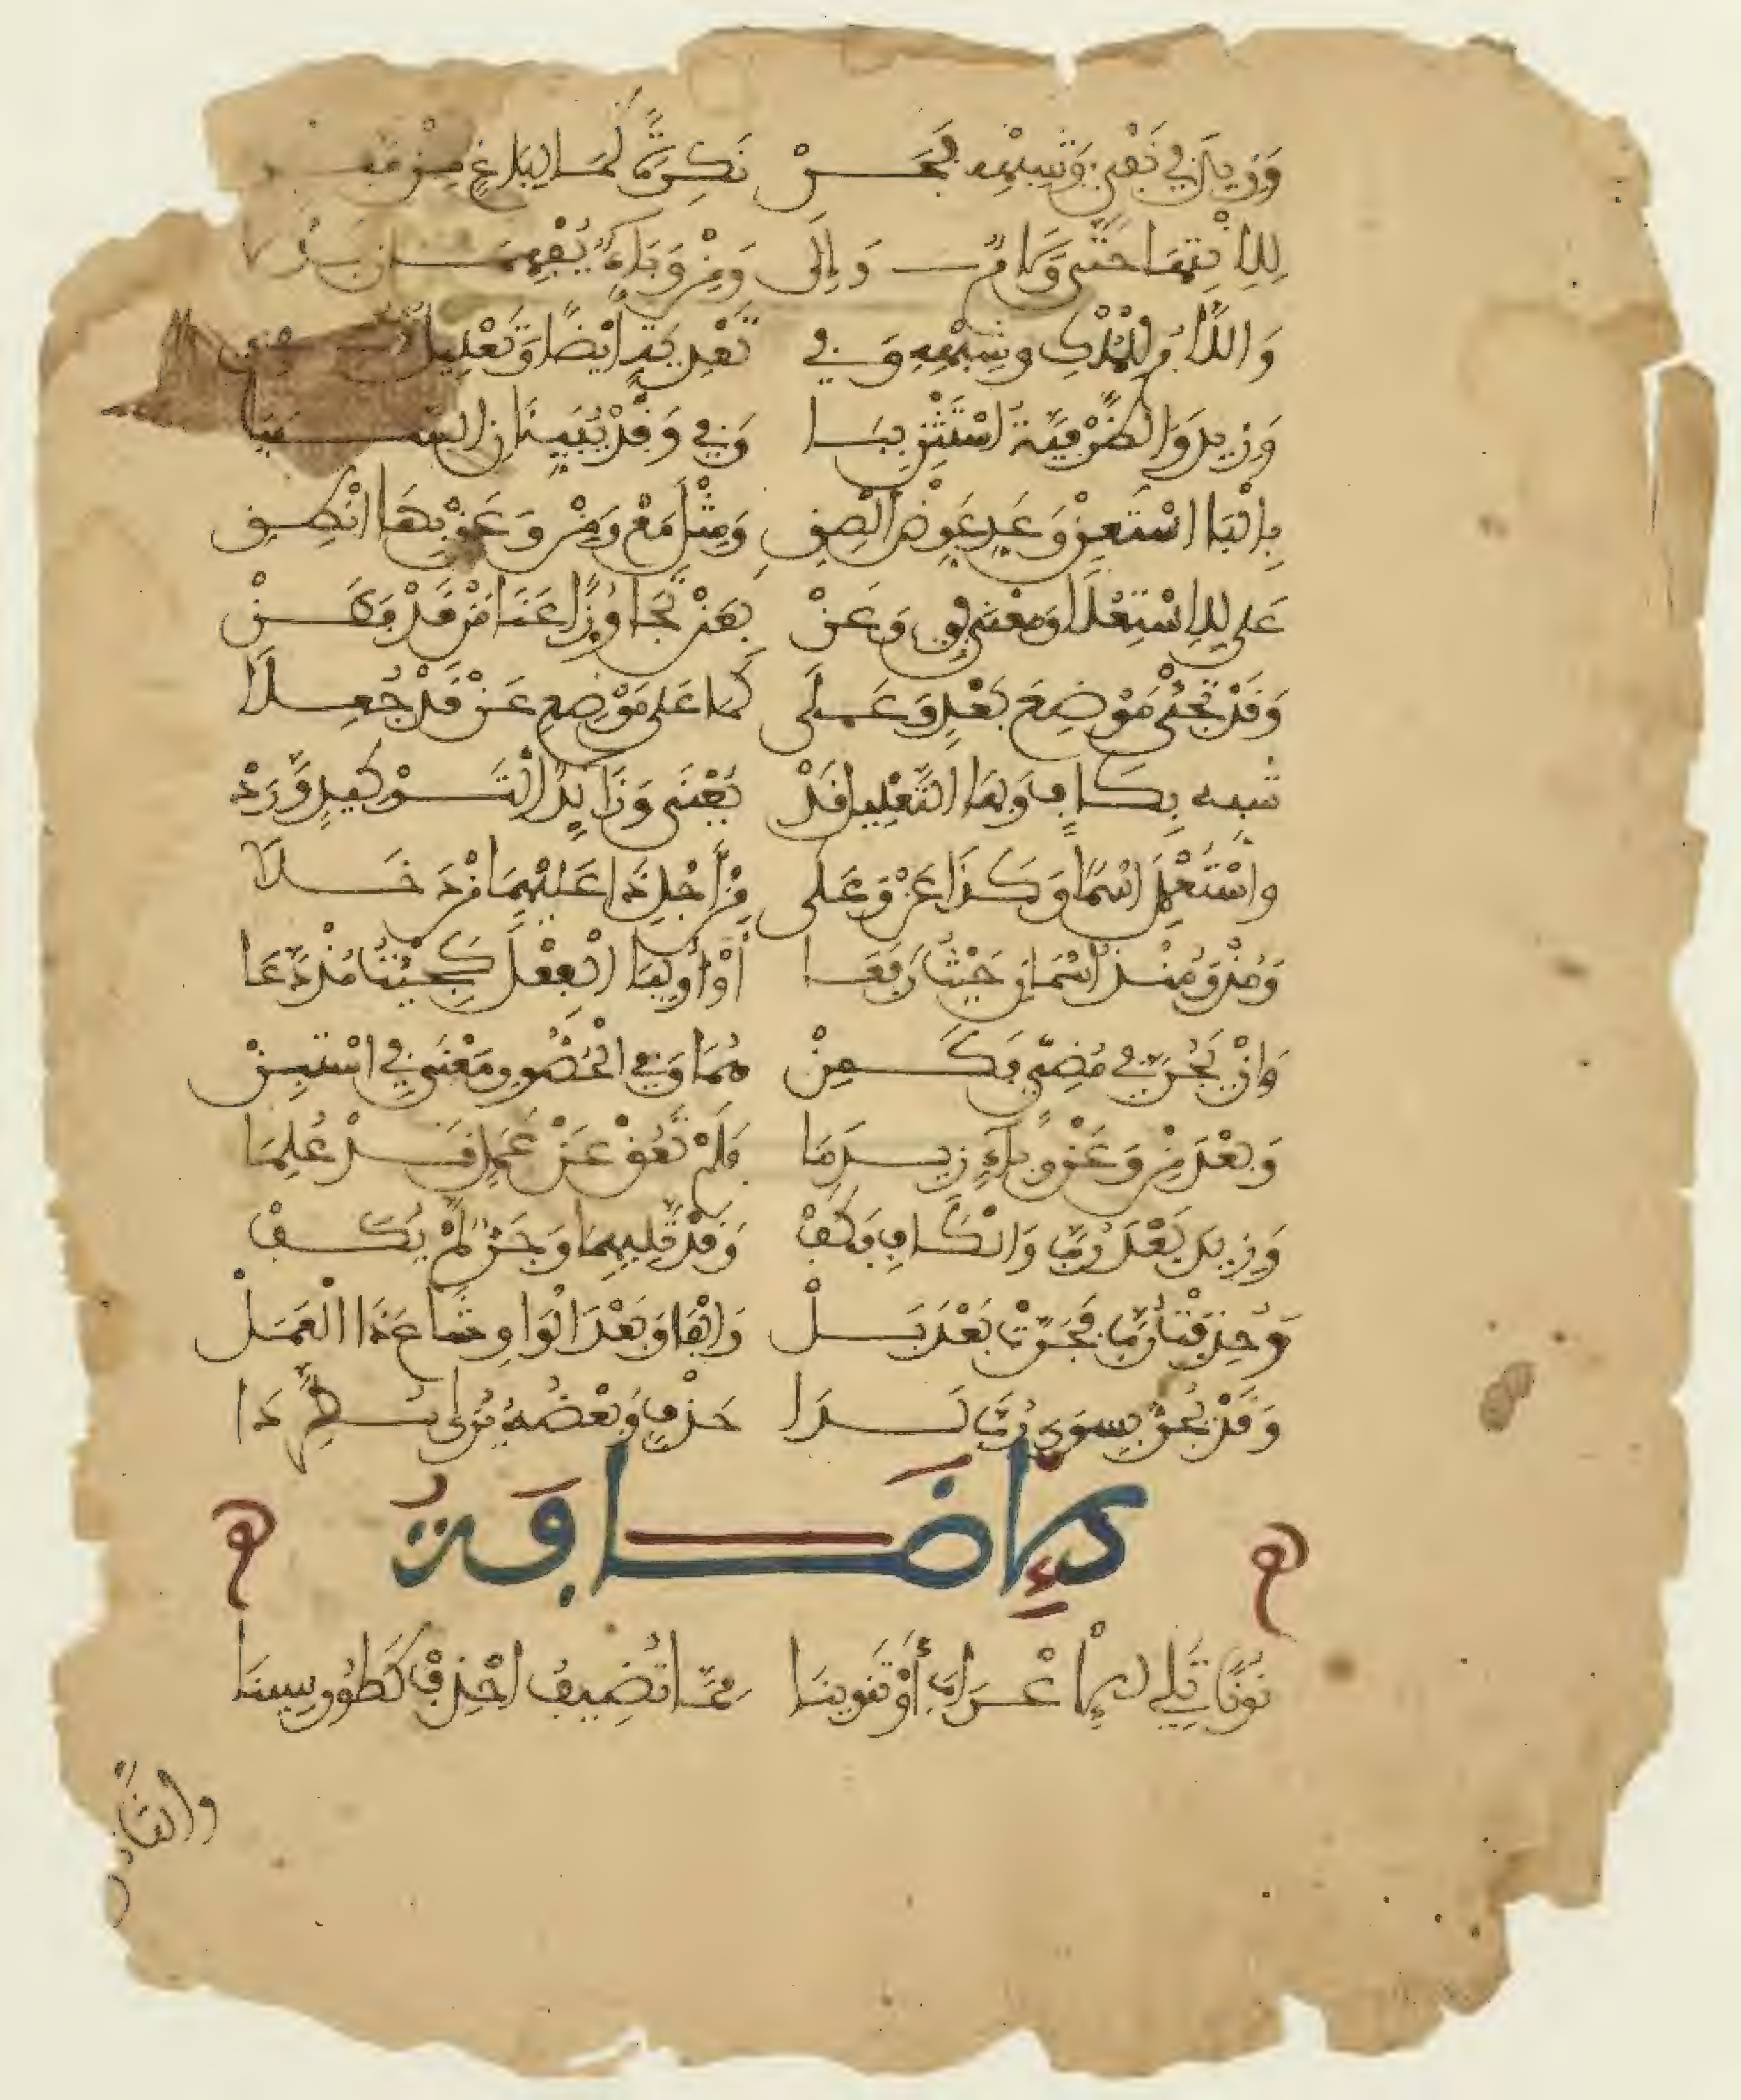 وَزِيدَ فِي نَفْيٍ وَشِبْهِهِ فَجَرْ نَكِرَةً كَمَا لِبَاغٍ مِنْ مَفَرْ
لِلِانْتِهَا حَتَّى وَلَامٌ وَإِلَى وَمِنْ وَبَاءٌ يُفْهِمَانِ بَدَلَا
وَاللَّامُ لِلْمُلْكِ وَشِبْهِهِ وَفِي تَعْدِيَةٍ أَيْضًا وَتَعْلِيلٍ قُفِي
وَزِيدَ وَالظَّرْفِيَّةَ اسْتَبِنْ بِبَا وَفِي وَقَدْ يُبَيِّنَانِ السَّبَبَا
بِالْبَا اسْتَعِنْ وَعَدِّ عَوِّضْ أَلْصِقِ وَمِثْلَ مَعْ وَمِنْ وَعَنْ بِهَا انْطِقِ
عَلَى لِلِاسْتِعْلَا وَمَعْنَى فِي وَعَنْ بِعَنْ تَجَاوُزًا عَنَا مَنْ قَدْ فَطَنْ
وَقَدْ تَجِيْ مَوْضِعَ بَعْدٍ وَعَلَى كَمَا عَلَى مَوْضِعَ عَنْ قَدْ جُعِلَا
شَبِّهْ بِكَافٍ وَبِهَا التَّعْلِيلُ قَدْ يُعْنَى وَزَائِدًا لِتَوْكِيدٍ وَرَدْ
وَاسْتُعْمِلَ اسْمًا وَكَذَا عَنْ وَعَلَى مِنْ أَجْلِ ذَا عَلَيْهِمَا مِنْ دَخَلَا
وَمُذْ وَمُنْذُ اسْمَانِ حَيْثُ رَفَعَا أَوْ أُولِيَا الْفِعْلَ كَجِئْتُ مُذْ دَعَا
وَإِنْ يَجُرَّا فِي مُضِيٍّ فَكَمِنْ هُمَا وَفِي الْحُضُورِ مَعْنَى فِي اسْتَبِنْ
وَبَعْدَ مِنْ وَعَنْ وَبَاءٍ زِيدَ مَا فَلَمْ تَعُقْ عَنْ عَمَلٍ قَدْ عُلِمَا
وَزِيدَ بَعْدَ رُبَّ وَالْكَافِ فَكَفْ وَقَدْ تَلِيهِمَا وَجَرٌّ لَمْ يُكَفْ
وَحُذِفَتْ رُبَّ فَجَرَّتْ بَعْدَ بَلْ وَالْفَا وَبَعْدَ الْوَاوِ شَاعَ ذَا الْعَمَلْ
وَقَدْ يُجَرُّ بِسِوَى رُبَّ لَدَا حَذْفٍ وَبَعْضُهُ يُرَى مُطَّرِدَا
الْإِضَافَةُ
نُونًا تَلِي الْإِعْرَابَ أَوْ تَنْوِينَا مِمَّا تُضِيفُ احْذِفْ كَطُورِ سِينَا